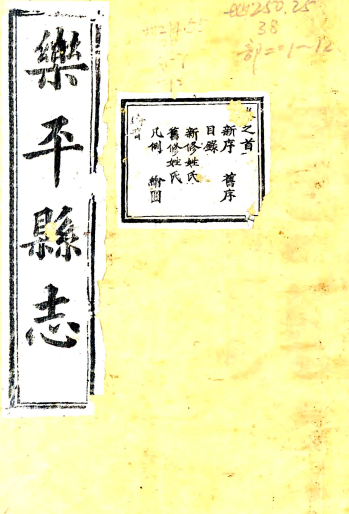 樂平縣志
卷之首
新序 舊序
目錄
新修姓氏
舊修姓氏
凡例 繪圖
250.25
38
一部二 1~12